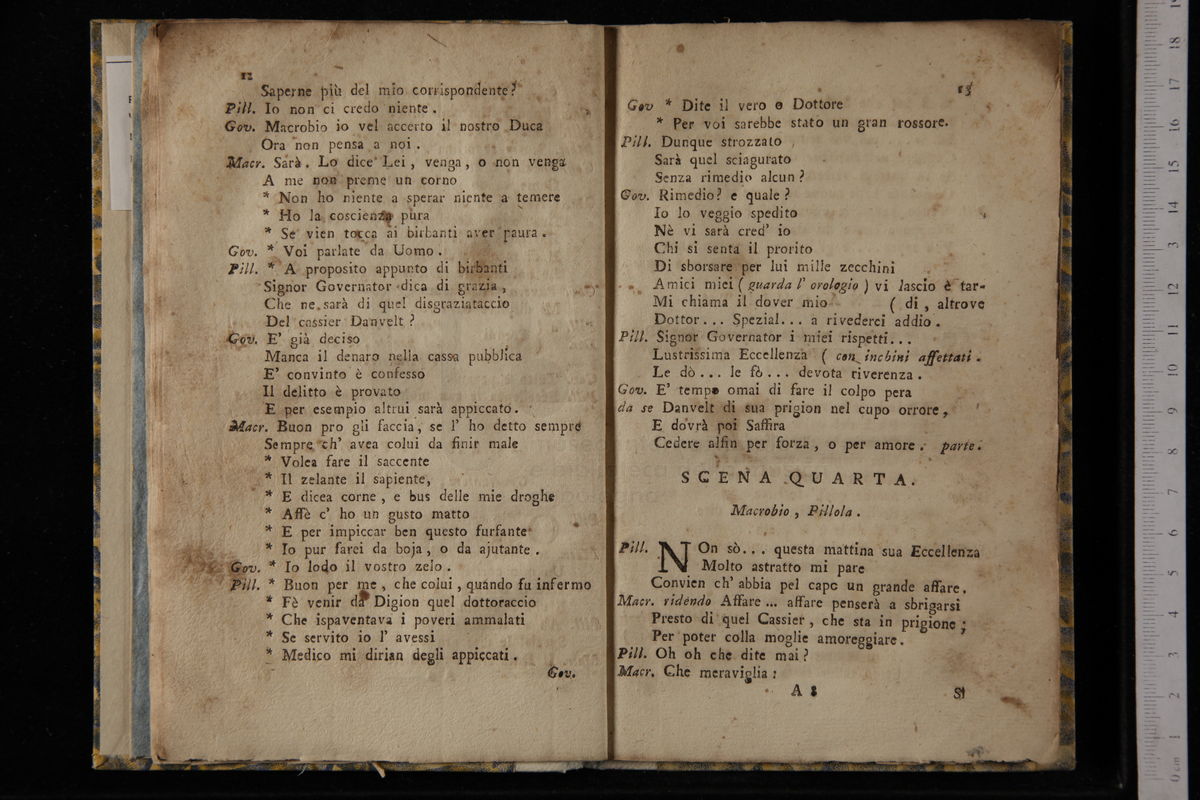 12
Saperne più del mio corrispondente?
Pill. Io non ci credo niente.
Gov. Macrobio io vel accerto il nostro Duca
Ora non pensa a noi.
Macr. Sarà. Lo dice Lei, venga, o non venga
A me non preme un corno
* Non ho niente a sperar niente a temere
* Ho la coscienza pura
* Se vien tocca ai birbanti aver paura.
Gov. * Voi parlate da Uomo.
Pill. * A proposito appunto di birbanti
Signor Governator dica di grazia,
Che ne sarà di quel disgraziataccio
Del cassier Danvelt?
Gov. E' già deciso
Manca il denaro nella cassa pubblica
E' convinto è confesso
Il delitto è provato
E per esempio altrui sarà appiccato.
Macr. Buon pro gli faccia, se l' ho detto sempre
Sempre ch' avea colui da finir male
* Volea fare il saccente
* Il zelante il sapiente,
* E dicea corne, e bus delle mie droghe
* Affè c' ho un gusto matto
* E per impiccar ben questo furfante
* Io pur farei da boja, o da ajutante.
Gov. * Io lodo il vostro zelo.
Pill. * Buon per me, che colui, quando fu infermo
* Fè venir da Digion quel dottoraccio
* Che ispaventava i poveri ammalati
* Se servito io l' avessi
* Medico mi dirian degli appiccati.
Gov.
13
Gov * Dite il vero o Dottore
* Per voi sarebbe stato un gran rossore.
Pill. Dunque strozzato
Sarà quel sciagurato
Senza rimedio alcun?
Gov. Rimedio? e quale?
Io lo veggio spedito
Nè vi sarà cred' io
Chi si senta il prorito
Di sborsare per lui mille zecchini
Amici miei (guarda l' orologio) vi lascio è tar-
Mi chiama il dover mio (di, altrove
Dottor... Spezial... a rivederci addio.
Pill. Signor Governator i miei rispetti...
Lustrissima Eccellenza (con inchini affettati.
Le dò... le fò... devota riverenza.
Gov. E' tempo omai di fare il colpo pera
da se Danvelt di sua prigion nel cupo orrore,
E dovrà poi Saffira
Cedere alfin per forza, o per amore. parte.
SCENA QUARTA.
Macrobio, Pillola.
Pill. NOn sò... questa mattina sua Eccellenza
Molto astratto mi pare
Convien ch' abbia pel capo un grande affare.
Macr. ridendo Affare... affare penserà a sbrigarsi
Presto di quel Cassier, che sta in prigione;
Per poter colla moglie amoreggiare.
Pill. Oh oh che dite mai?
Macr. Che meraviglia:
A
Si